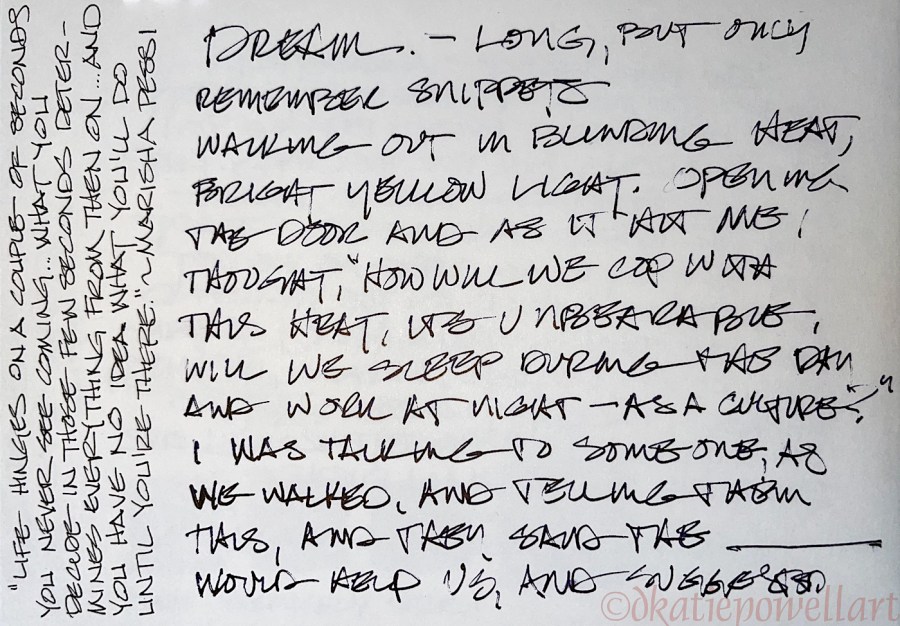 "LIFE HINGES ON A COUPLE OF SECONDS
YOU NEVER SEE COMING... WHAT YOU
DECIDE IN THOSE FEW SECONDS DETER-
MINES EVERYTHING FROM THEN ON... AND
YOU HAVE NO IDEA WHAT YOU'LL DO
UNTIL YOU'RE THERE." ~ MARISHA PESSI
DREAM. — LONG, BUT ONLY
REMEMBER SNIPPETS
WALKING OUT IN BLINDING HEAT,
BRIGHT YELLOW LIGHT. OPENING
THE DOOR AND AS IT HIT ME I
THOUGHT, "HOW WILL WE COP WITH
THIS HEAT, IT'S UNBEARABLE,
WILL WE SLEEP DURING THE DAY
AND WORK AT NIGHT — AS A CULTURE?"
I WAS TALKING TO SOMEONE, AS
WE WALKED, AND TELLING THEM
THIS, AND THEY SAID THE ______
WOULD HELP US, AND SUGGESTED
©dkatiepowellart